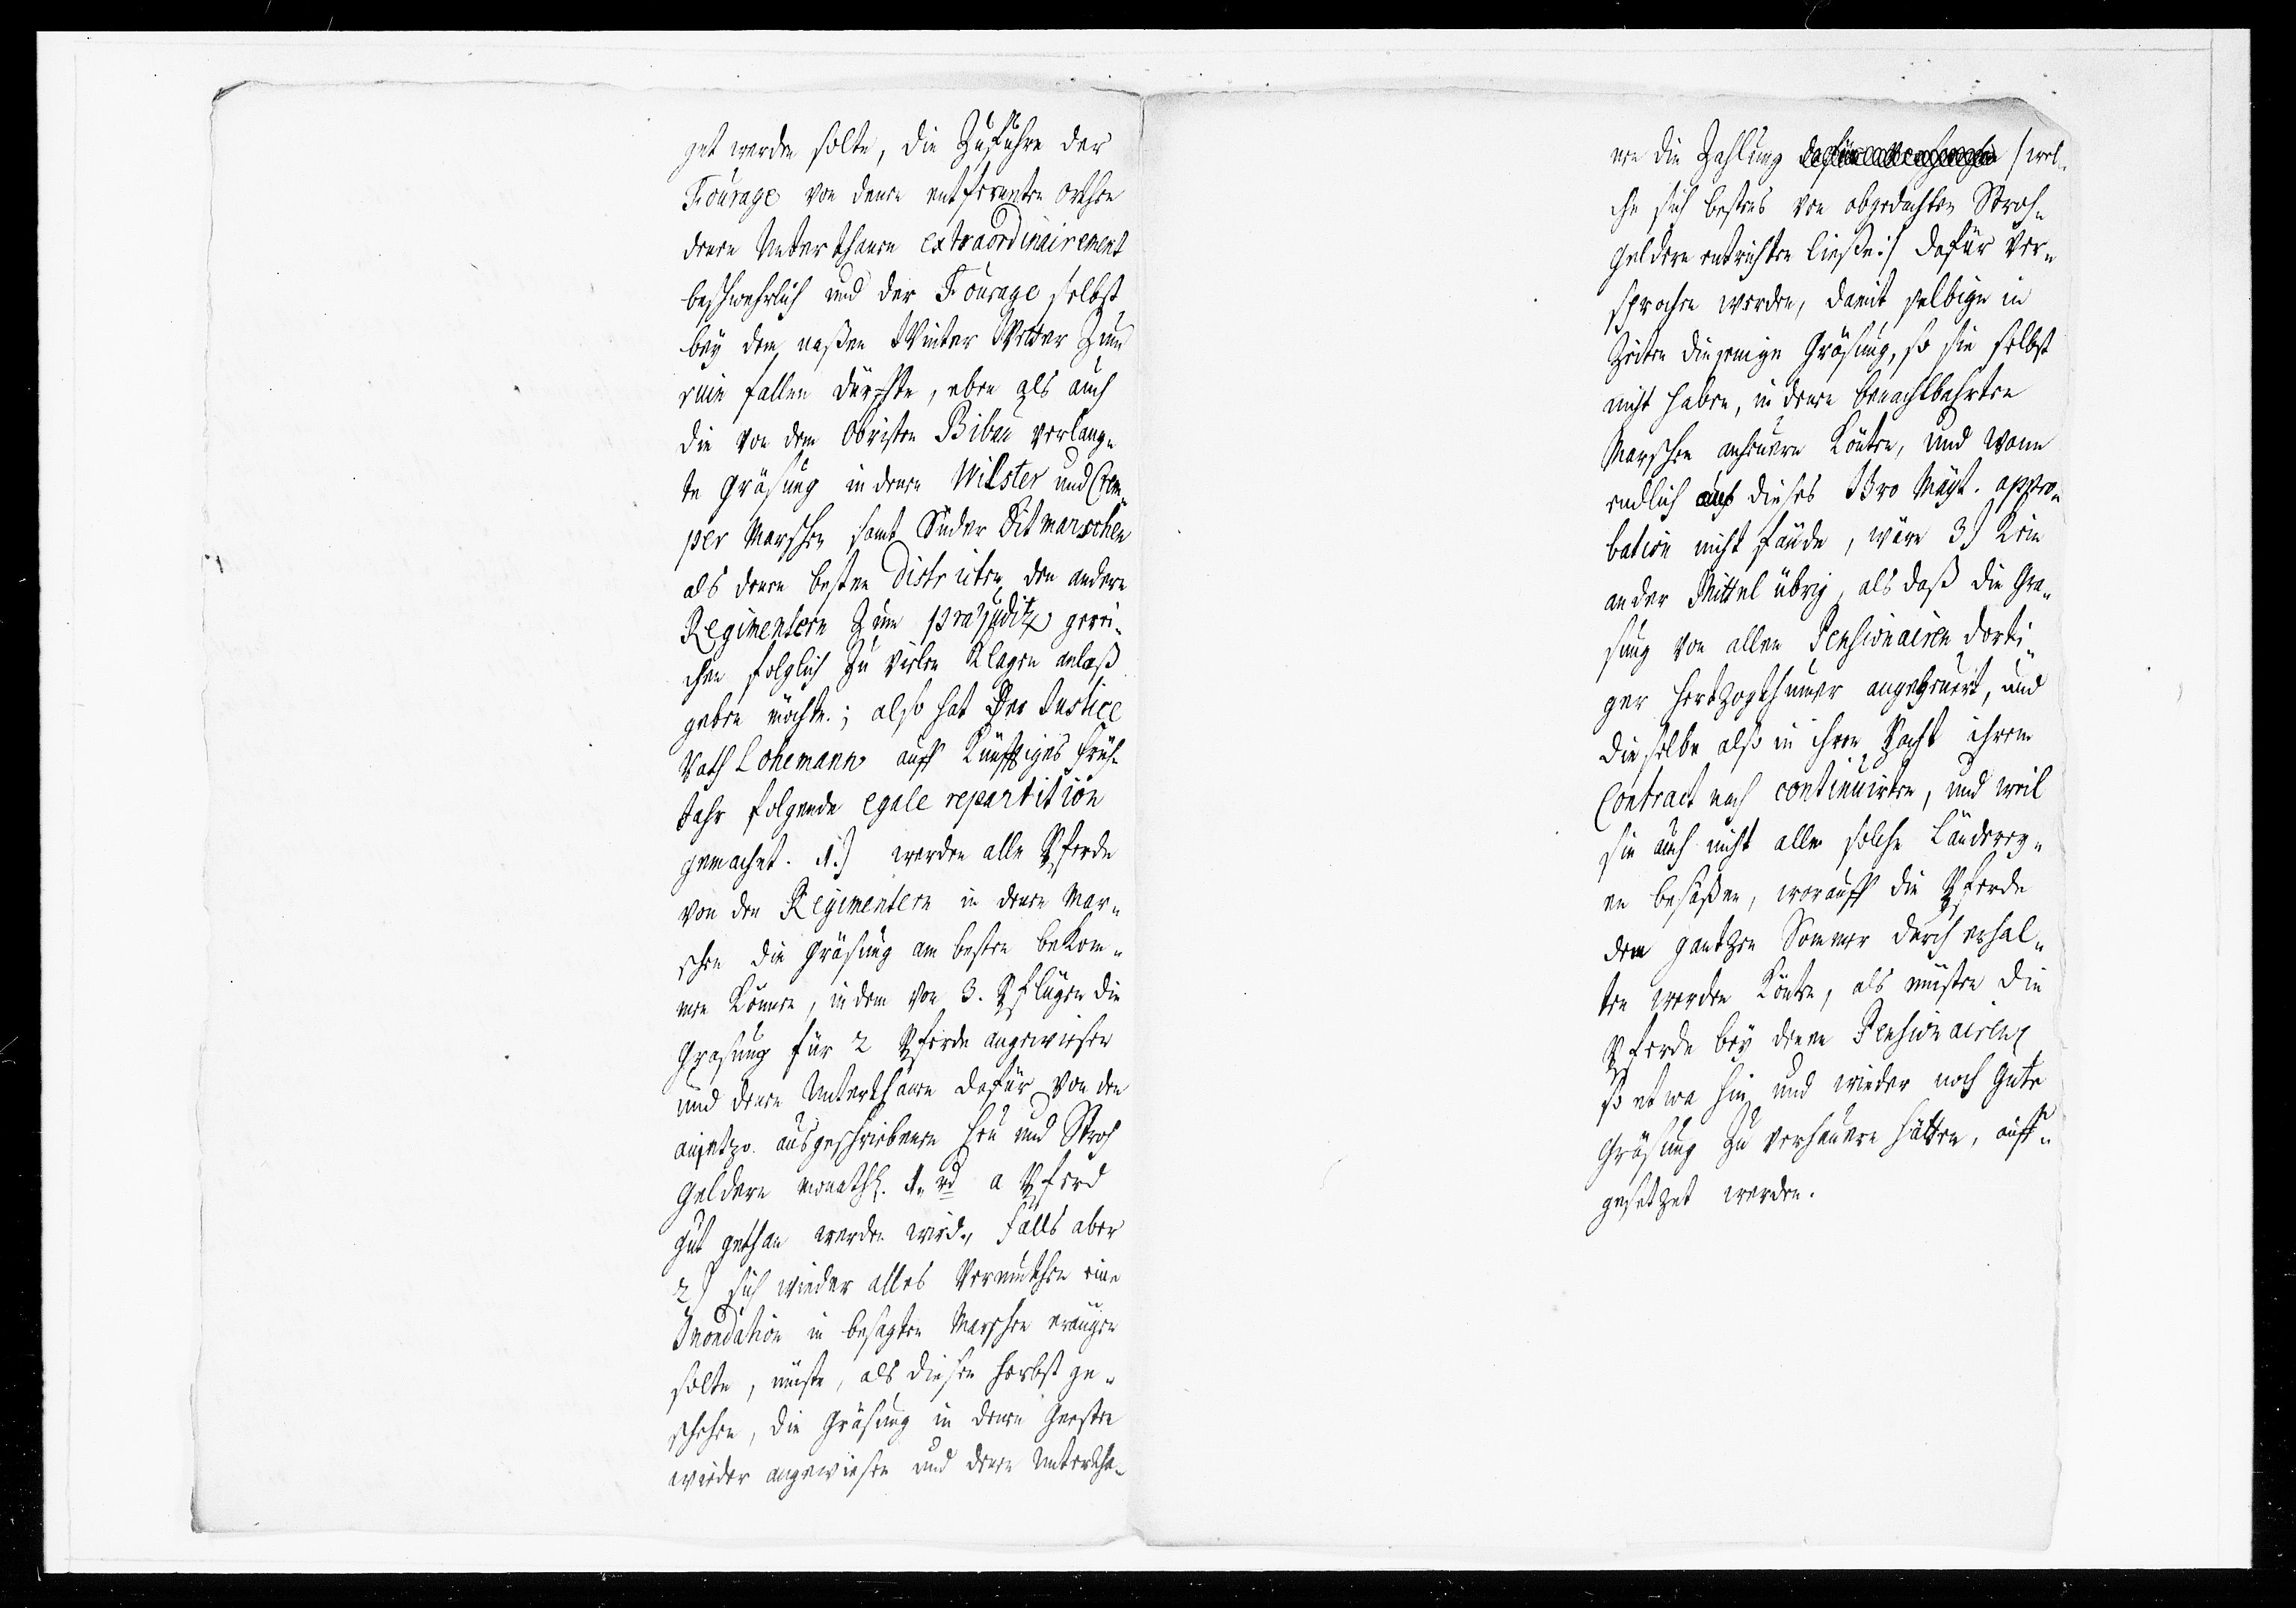 get werden solte, die Zufuhre der
Fourage von denen entfernten orthen
denen Unterthanen extraordinairement
beschwehrlich und der Fourage selbst
bey dem naßen Winter Wetter Zum
ruin fallen dürfte, eben als auch
die von dem Obristen Bibau verlang¬
te Gräsung in denen Wilster und Crem¬
per Marschen samt Süder Ditmarschen
als denen besten Districten den andern
Regimentern Zum præjuditz gerei¬
chen folglich zu vielen Klagen anlaß
geben möchte.; also hat Der Justice
Rath Lohemann auff Künfftiges Früh¬
Jahr folgende egale repartition
gemachet. 1.) werden alle Pferde
von den Regimentern in denen Mar¬
schen die Gräsung am besten bekom¬
men Können, in dem von 3. Pflügen die
Grasung für 2 Pferde angewiesen
und denen Unterthanen dafür von den
anjetzo ausgeschriebenen Heu und Stroh
Geldern monathl. 1. rd a Pferd
gut gethan werden wird, Falls aber
2) sich wieder alles Vermuthen eine
Inondation in besagten Marschen eräugen
solte, müste, als diesen Herbst ge¬
schehen, die Gräsung in denen Geesten
wieder angewiesen und denen Untertha¬
nen die Zahlung /: wel¬
che sich bestens von obgedachten Stroh¬
geldern entrichten ließe :/ dafür ver¬
sprochen werden, damit selbige in
Zeiten diejenige Gräsung, so sie selbst
nicht haben, in denen benachbahrten
Marschen anheuern Könten, und wann
endlich auch dieses Ihro Mayt. appro¬
bation nicht fände, wäre 3) Kein
ander Mittel übrig, als daß die Gra¬
sung von allen Pensionairen dorti¬
ger Hertzogthümer angeheuert, und
dieselbe also in ihrer Pacht ihrem
Contract nach continuirten, und weil
sie auch nicht alle solche Länderey¬
en besäßen, worauff die Pferde
den gantzen Sommer durch erhal¬
ten werden Könten, als müsten die
Pferde bey denen Pensionairen,
so etwa hin und wieder noch gute
Gräsung zu verheuern hätten, auff¬
gesetzet werden.